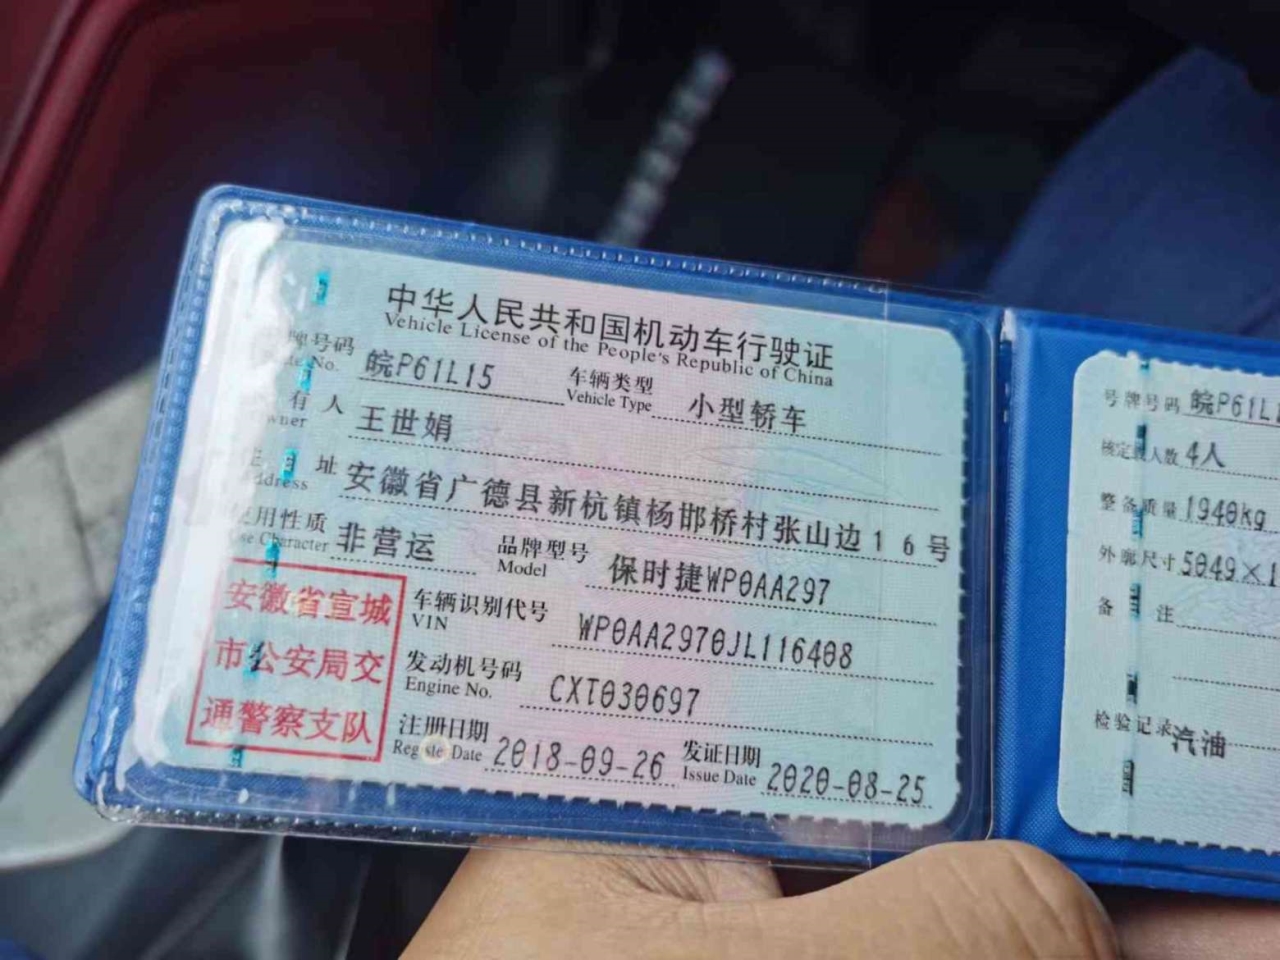 中华人民共和国机动车行驶证
Vehicle License of the People's Republic of China
牌号码 皖P61L15 车辆类型 小型轿车
No. Vehicle Type
有人 王世娟
址 安徽省广德县新杭镇杨邯桥村张山边16号
使用性质 非营运 品牌型号 保时捷WP0AA297
Use Character Model
车辆识别代号 WP0AA2970JL116408
VIN
发动机号码 CXT030697
Engine No.
注册日期 2018-09-26 发证日期 2020-08-25
Register Date Issue Date
安徽省宣城
市公安局交
通警察支队
号牌号码 皖P61L
核定载人数 4人
整备质量 1940kg
外廓尺寸 5049×1
备注
检验记录 汽油